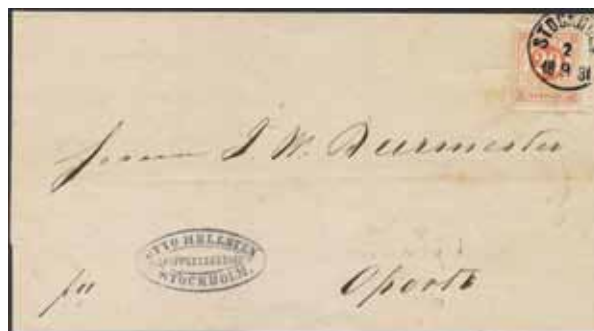 STOCKHOLM
2
18 9 81
20
Herrn J. W. Burmester
OTTO HELLSTEN
STOCKHOLM.
Oporto